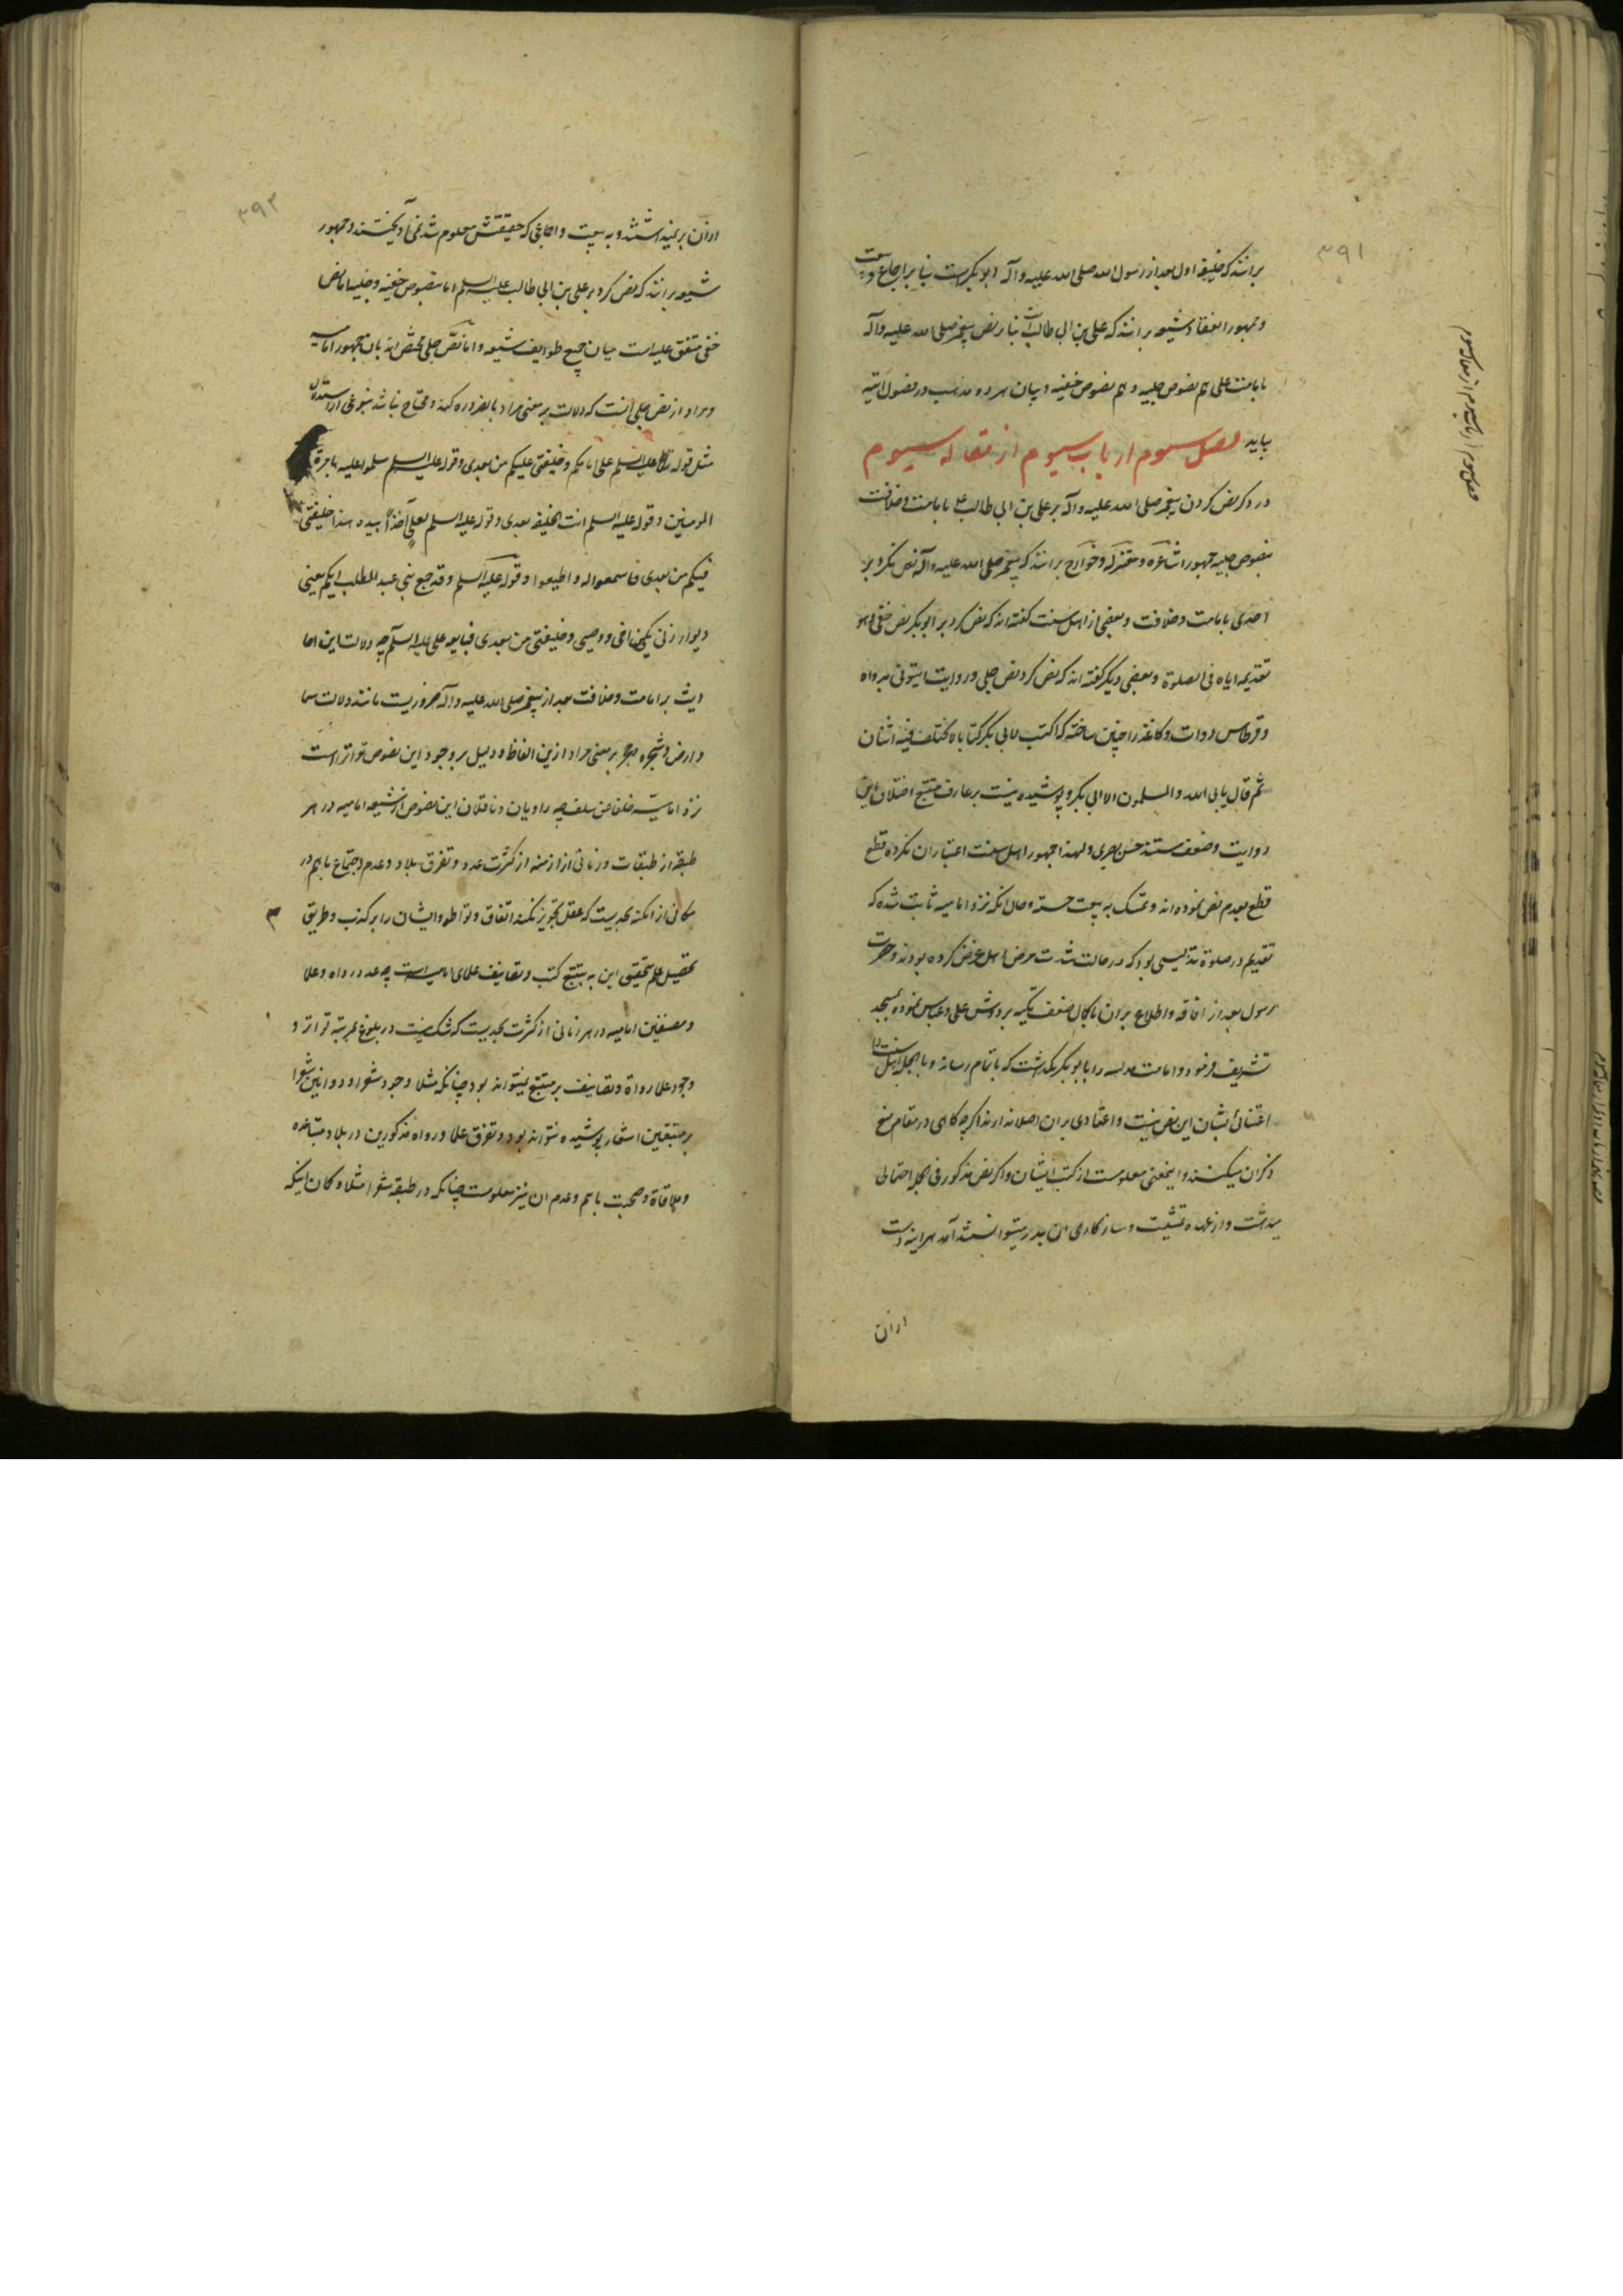 ۳۹۱
برانند که خلیفه اول بعد از رسول الله صلی الله علیه وآله ابو بکر است بنا بر اجماع و بیعت
و جمهور شیعه برانند که علی بن ابی طالب است بنا بر نص پیغمبر صلی الله علیه وآله
بامامت علی هم بنصوص جلیه و هم بنصوص خفیه و بیان هر دو مذهب در فصول اتیه
بیاید فصل سوم از باب سیوم از مقاله سیوم
در ذکر نص کردن پیغمبر صلی الله علیه وآله بر علی بن ابی طالب ع بامامت و خلافت
بنصوص جلیه جمهور اشاعره و معتزله و خوارج برانند که پیغمبر صلی الله علیه وآله نص نکرد بر
احدی بامامت و خلافت و بعضی از اهل سنت گفته اند که نص کرد بر ابو بکر نص خفی و هو
تقدیمه ایاه فی الصلوة و بعضی دیگر گفته اند که نص کرد نص جلی و روایت ایتونی بدواه
و قرطاس دوات و کاغذ را چنین ساخته که اکتب لابی بکر کتابا لا یختلف فیه اثنان
ثم قال یابی الله والمسلمون الا ابی بکر و پوشیده نیست بر عارف متتبع اختلال این
روایت و ضعف سند حسن بصری و لهذا جمهور اهل سنت اعتبار ان نکرده قطع
قطع بعدم نص نموده اند و تمسک به بیعت جسته و حال انکه نزد امامیه ثابت شده که
تقدیم در صلوة تدلیسی بود که در حالت شدت مرض اهل غرض کرده بودند و حضرت
رسول بعد از افاقه و اطلاع بران با کمال ضعف تکیه بر دوش علی و عباس نموده بمسجد
تشریف فرمود و امامت مدلسه را بابو بکر نگذاشت که باتمام رساند و بالجمله اهل سنت را
اعتنائی بشان این نص نیست و اعتمادی بران اصلا ندارند اگرچه گاهی در مقام منع
ذکران میکنند و اینمعنی معلومست از کتب ایشان و اگر نص مذکور فی الجمله احتمالی
میداشت و از عهده تمشیت و سازکاری ان بدر میتوانستند آمد هر اینه دست
ازان
۳۹۲
ازان بر نمیداشتند و به بیعت و اجماعی که حقیقتش معلوم شد نمی آویختند و جمهور
شیعه برانند که نص کرد بر علی بن ابی طالب علیه السلم اما بنصوص خفیه و جلیه اما نص
خفی متفق علیه است میان جمیع طوایف شیعه و اما نص جلی مختص اند بان جمهور امامیه
و مراد از نص جلی انست که دلالت بر معنی مراد بالضروره کند و محتاج نباشد بنوعی از استدلال
مثل قوله علیه السلم علی امامکم و خلیفتی علیکم من بعدی و قوله علیه السلم سلموا علیه بامرة
المومنین و قوله علیه السلم انت الخلیفه بعدی و قوله علیه السلم لعلی آخذا بیده هذا خلیفتی
فیکم من بعدی فاسمعوا له و اطیعوا و قوله علیه السلم و قد جمع بنی عبد المطلب ایکم یبایعنی
و یوازرنی یکن اخی و وصیی و خلیفتی من بعدی فبایعه علی علیه السلم چه دلالت این احا
دیث بر امامت و خلافت بعد از پیغمبر صلی الله علیه وآله ضروریست مانند دلالت سما
و ارض و شجر و حجر بر معنی مراد ازین الفاظ و دلیل بر وجود این نصوص تواتر است
نزد امامیه خلفا عن سلف چه راویان و ناقلان این نصوص از شیعه امامیه در هر
طبقه از طبقات و زمانی از ازمنه از کثرت عدد و تفرق بلاد و عدم اجتماع باهم در
مکانی از امکنه بحدیست که عقل تجویز نکند اتفاق و تواطو ایشان را بر کذب و طریق
تحصیل علم تحقیق این به تتبع کتب و تصانیف علمای امامیه است چه عدد رواه و علما
و مصنفین امامیه در هر زمانی از کثرت بحدیست که شک نیست در بلوغ بمرتبه تواتر و
وجود علما و رواة و تصانیف بر متتبع نمیتواند بود چنانکه مثلا وجود شعرا و دواوین شعرا
بر متتبعین اشعار پوشیده نتواند بود و تفرق علما و رواه مذکورین در بلاد متباعده
و ملاقاة و صحبت باهم و عدم ان نیز معلومست چنانکه در طبقه شعرا مثلا و کمان اینکه